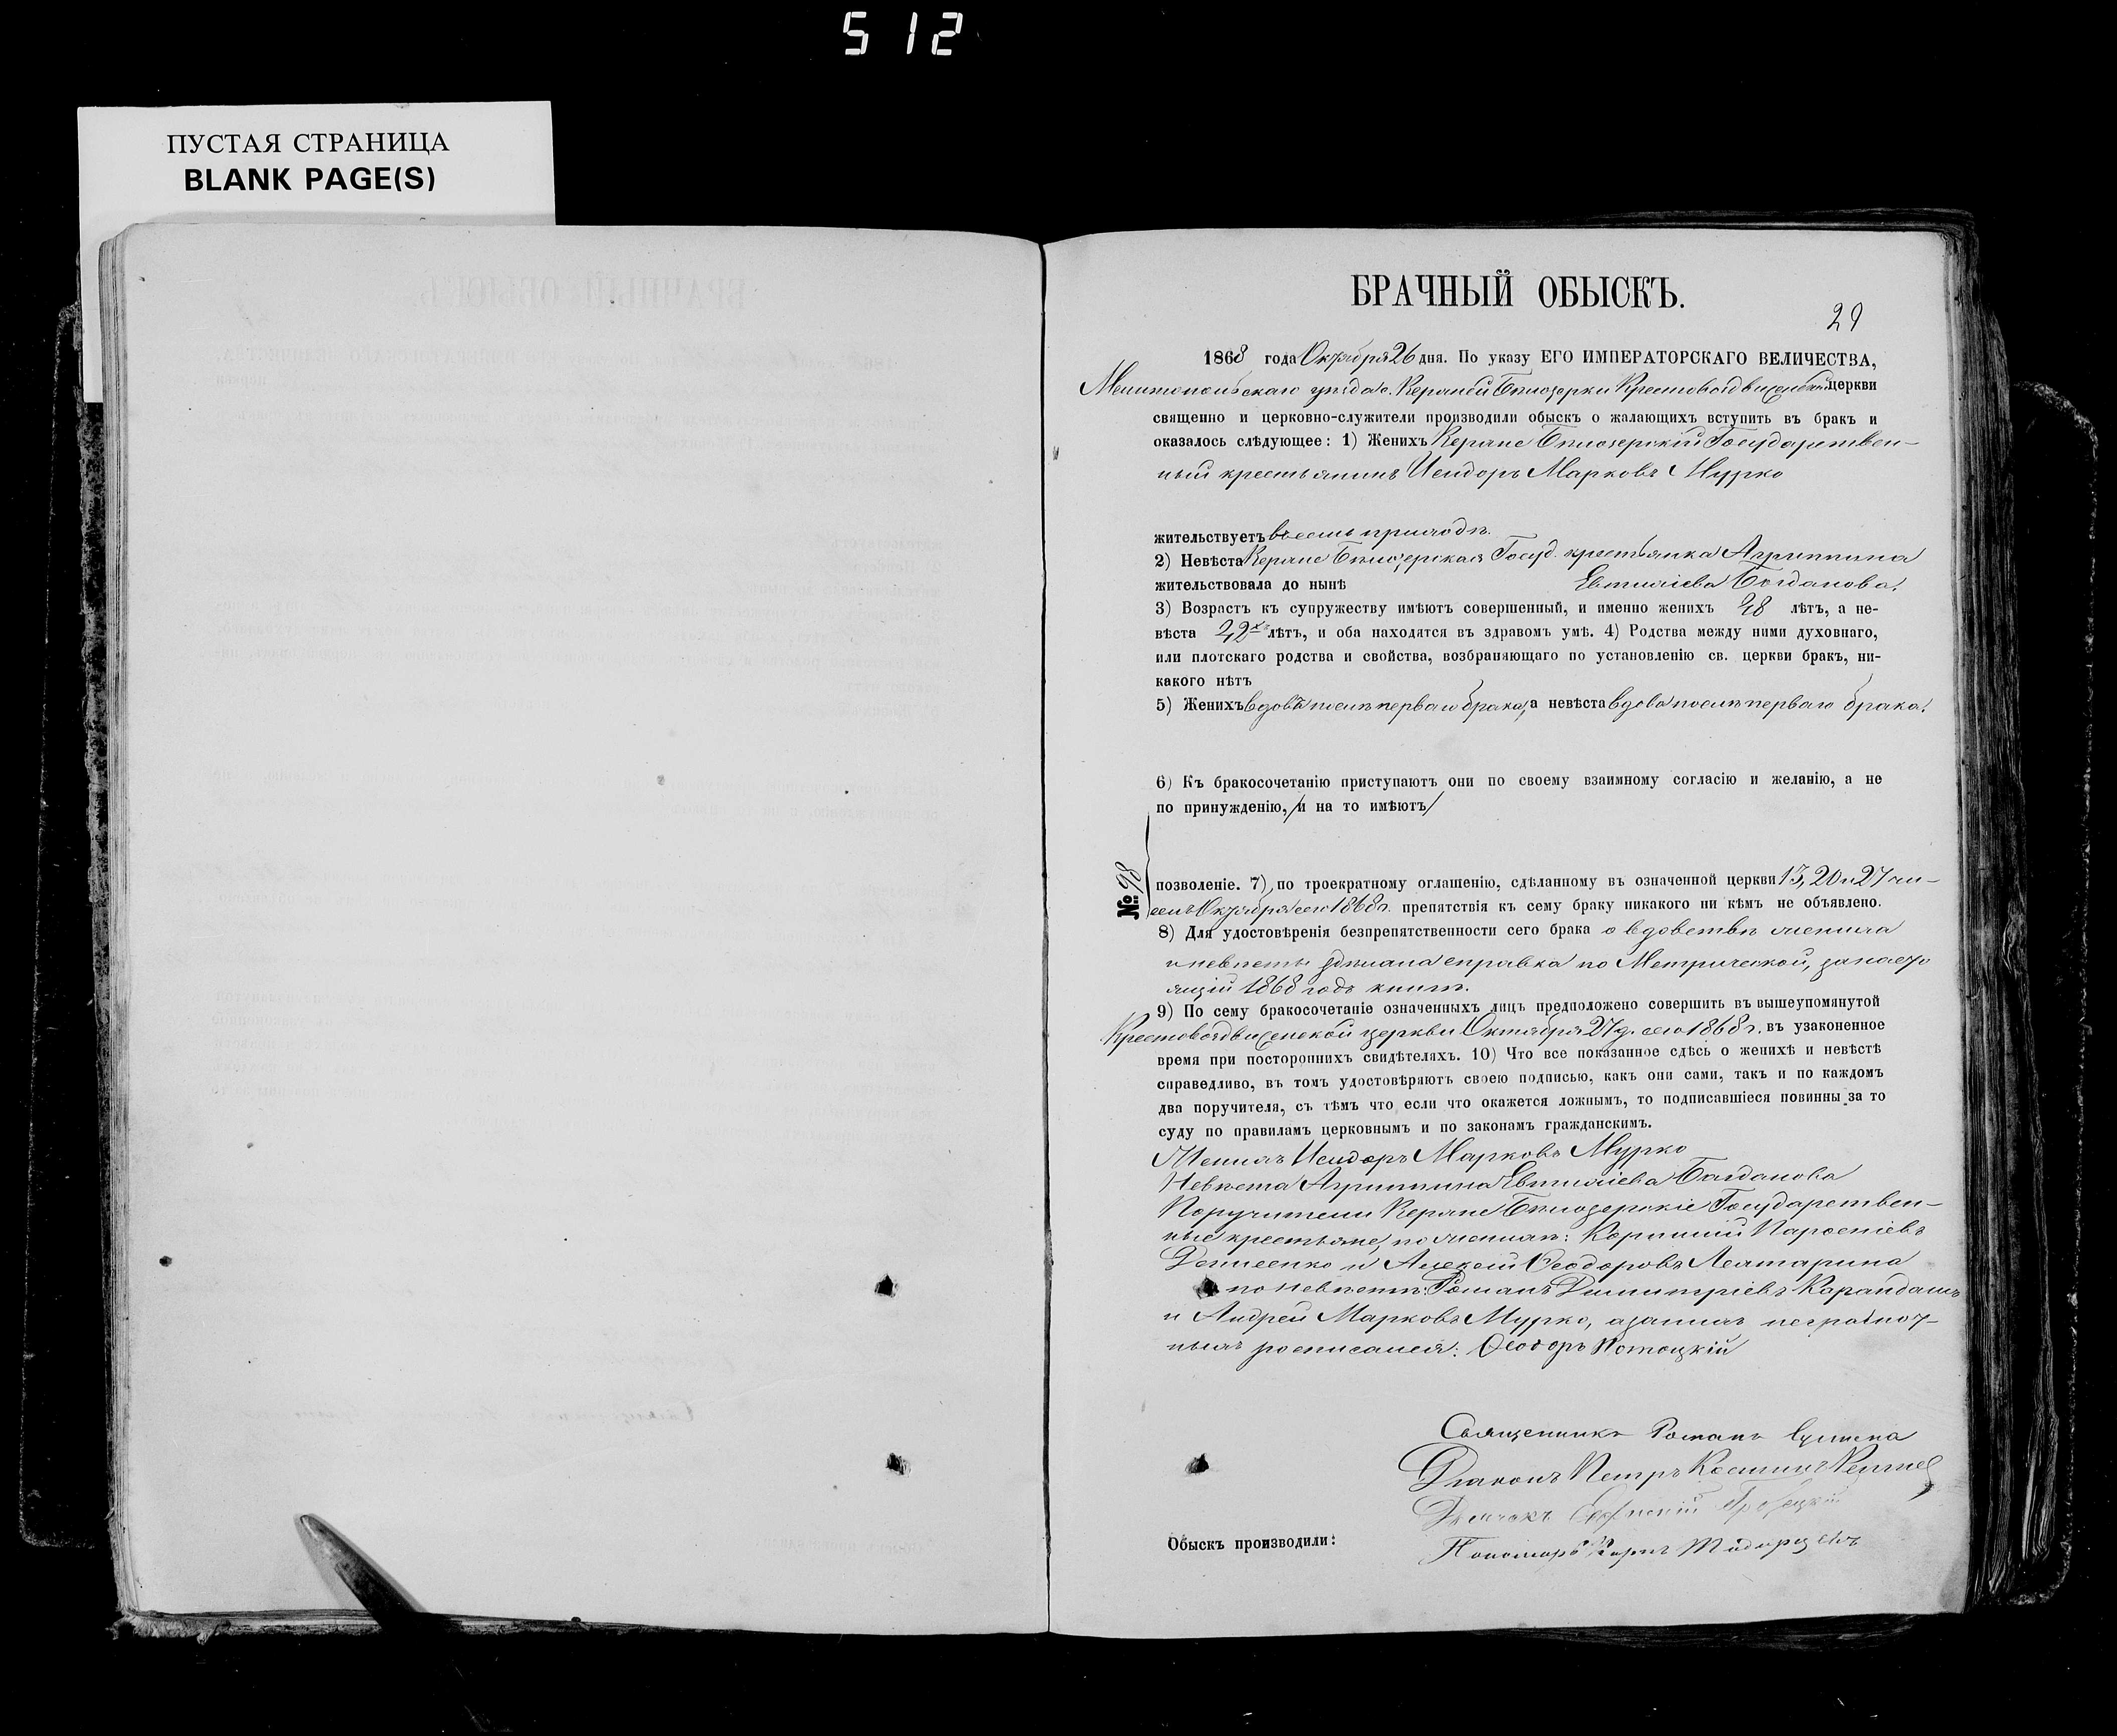 512
ПУСТАЯ СТРАНИЦА
BLANK PAGE(S)
БРАЧНЫЙ ОБЫСКЪ.
29
1868 года Октября 26 дня. По указу ЕГО ИМПЕРАТОРСКАГО ВЕЛИЧЕСТВА,
Мелитопольскаго уѣзда с. Верхней Бѣлозерки Крестовоздвиженской церкви
священно и церковно-служители производили обыскъ о жалающихъ вступить въ бракъ и
оказалось слѣдующее: 1) Женихъ Верхне Бѣлозерскій Государствен-
ный крестьянинъ Исидоръ Марковъ Мурко
жительствуетъ въ семъ приходѣ.
2) Невѣста Верхне Бѣлозерская Госуд. крестьянка Агрипина
жительствовала до нынѣ Евтихіева Богданова.
3) Возрастъ къ супружеству имѣютъ совершенный, и именно женихъ 28 лѣтъ, а не-
вѣста 22х лѣтъ, и оба находятся въ здравомъ умѣ. 4) Родства между ними духовнаго,
или плотскаго родства и свойства, возбраняющаго по установленію св. церкви бракъ, ни-
какого нѣтъ
5) Женихъ вдовъ послѣ перваго брака, а невѣста вдова послѣ перваго брака.
6) Къ бракосочетанію приступаютъ они по своему взаимному согласію и желанію, а не
по принужденію, /и на то имѣютъ/
№ 98
позволеніе. 7) по троекратному оглашенію, сдѣланному въ означенной церкви 13, 20 и 27 чи-
селъ Октября сего 1868 г. препятствія къ сему браку никакого ни кѣмъ не объявлено.
8) Для удостовѣренія безпрепятственности сего брака о вдовствѣ жениха
и невѣсты сдѣлана справка по Метрической, за насто
ящій 1868 годъ книгѣ.
9) По сему бракосочетаніе означенныхъ лицъ предположено совершить въ вышеупомянутой
Крестовоздвиженской церкви Октября 27 д. сего 1868 г. въ узаконенное
время при постороннихъ свидѣтеляхъ. 10) Что все показанное сдѣсь о женихѣ и невѣстѣ
справедливо, въ томъ удостовѣряютъ своею подписью, какъ они сами, такъ и по каждомъ
два поручителя, съ тѣмъ что если что окажется ложнымъ, то подписавшіеся повинны за то
суду по правиламъ церковнымъ и по законамъ гражданскимъ.
Женихъ Исидоръ Марковъ Мурко
Невѣста Агрипина Евтихіева Богданова
Поручители Верхне Бѣлозерскіе Государствен-
ные крестьяне, по женихѣ: Корнилій Парѳеніевъ
Денисенко и Алексѣй Ѳеодоровъ
по невѣстѣ: Романъ Димитріевъ Карандашъ
и Андрей Марковъ Мурко, а за нихъ неграмот-
ныхъ росписался: Ѳеодоръ Потоцкій
Священникъ Романъ
Діаконъ Петръ Костинъ
Дьячокъ
Обыскъ производили: Пономарь